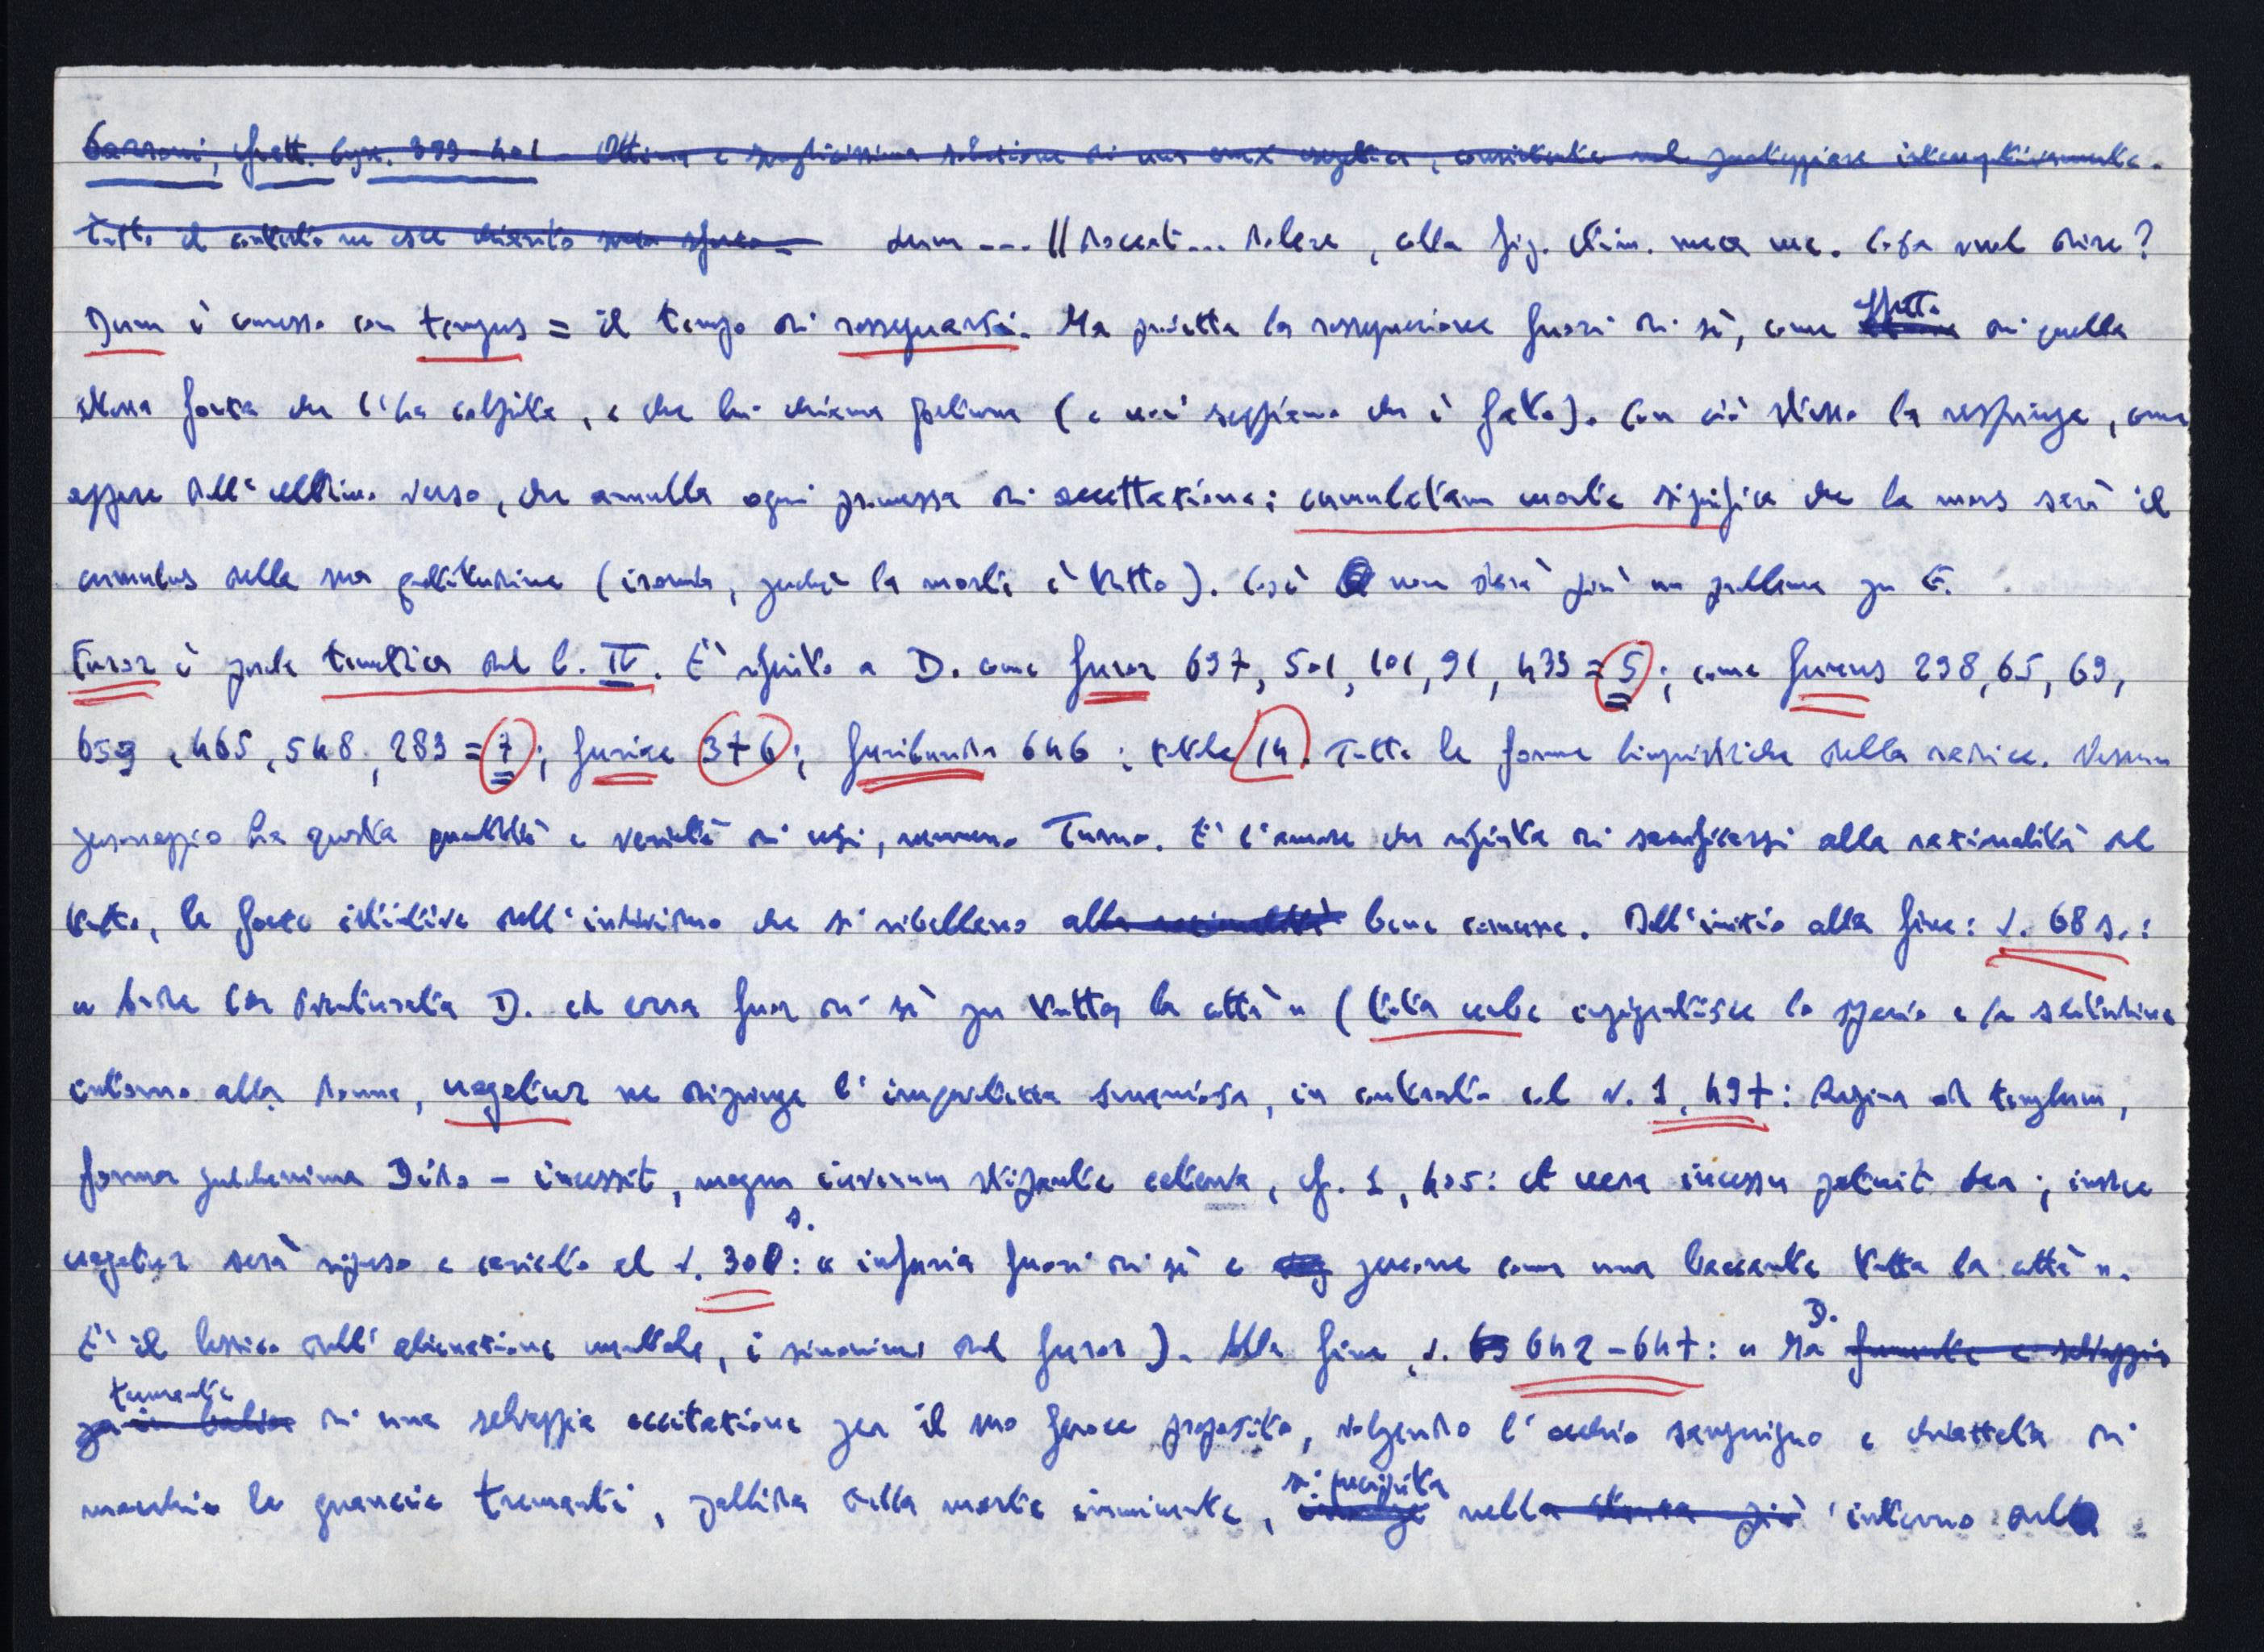 Barroni, Gratt. Cyn. 399-401 - Ottima e semplicissima soluzione di una crux esegetica, consistente nel punteggiare interrogativamente.
Tutto il contesto ne esce chiarito senza sforzo. dum ... // doceat ... dolere, alla fig. etim. meca me. Cosa vuol dire?
Dum è connesso con tempus = il tempo di rassegnarsi. Ma proietta la rassegnazione fuori di sé, come effetto di quella
stessa forza che l'ha colpita, e che lui chiama fortuna (e noi sappiamo che è fato). Con ciò stesso la respinge, come
appare dall'ultimo verso, che annulla ogni promessa di accettazione: cumulatam morte significa che la mors sarà il
cumulus della sua gratitudine (ironia, perché la morte è tutto). Così non darà più un problema per E.
Furor è parola tematica del l. IV. È riferito a D. come furor 697, 501, 101, 91, 433 = 5; come furens 298, 65, 69,
659, 465, 548, 283 = 7; furiae 376; furibunda 646: totale 14. Tutte le forme linguistiche della radice. Nessun
personaggio ha questa quantità e varietà di usi, nemmeno Turno. È l'amore che rifiuta di sacrificarsi alla razionalità del
tutto, le forze istintive dell'individuo che si ribellano alla razionalità bene comune. Dall'inizio alla fine: v. 68 s.:
"arde la sventurata D. ed erra fuor di sé per tutta la città" (tota urbe ingigantisce lo spazio e la solitudine
intorno alla donna, vagatur ne dipinge l'irrequietezza smaniosa, in contrasto col v. 1, 497: Regina ad templum,
forma pulcherrima Dido - incessit, magna iuvenum stipante caterva, cfr. 1, 405: et vera incessu patuit dea; invece
vagatur sarà ripreso e variato al v. 300 s.: "infuria fuori di sé e percorre come una baccante tutta la città".
È il lessico dell'alienazione mentale, i sinonimi del furor). Alla fine, v. 642-647: "Ma D. fremente e selvaggia
per in balia tremante di una selvaggia eccitazione per il suo feroce proposito, volgendo l'occhio sanguigno e chiazzata di
macchie le guance tremanti, pallida della morte imminente, si precipita nella stanza più interno della